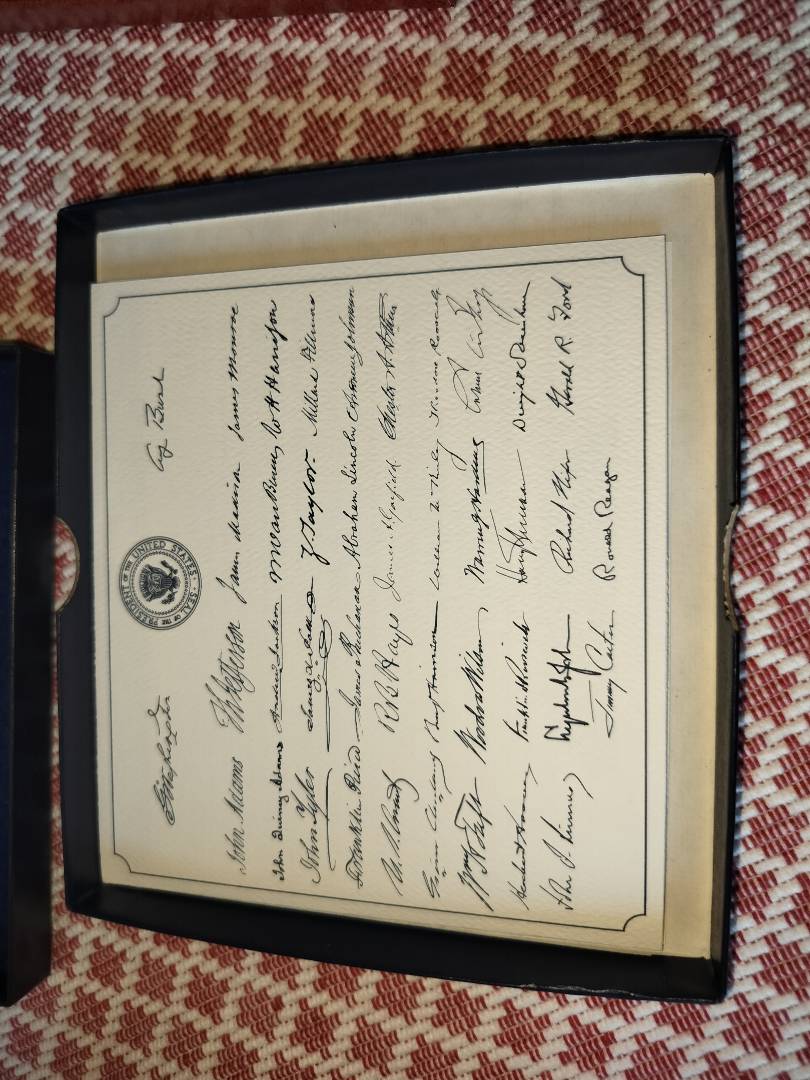 G Washington G Bush
SEAL OF THE PRESIDENT OF THE UNITED STATES
John Adams Th Jefferson James Madison James Monroe
John Quincy Adams Andrew Jackson M Van Buren W H Harrison
John Tyler James K. Polk Z. Taylor. Millard Fillmore
Franklin Pierce James Buchanan Abraham Lincoln Andrew Johnson
U. S. Grant R B Hayes James A. Garfield. Chester A Arthur
Grover Cleveland Benj Harrison William McKinley Theodore Roosevelt
Wm H Taft Woodrow Wilson Warren G Harding Calvin Coolidge
Herbert Hoover Franklin D Roosevelt Harry Truman Dwight D Eisenhower
John F. Kennedy Lyndon B. Johnson Richard Nixon Gerald R. Ford
Jimmy Carter Ronald Reagan